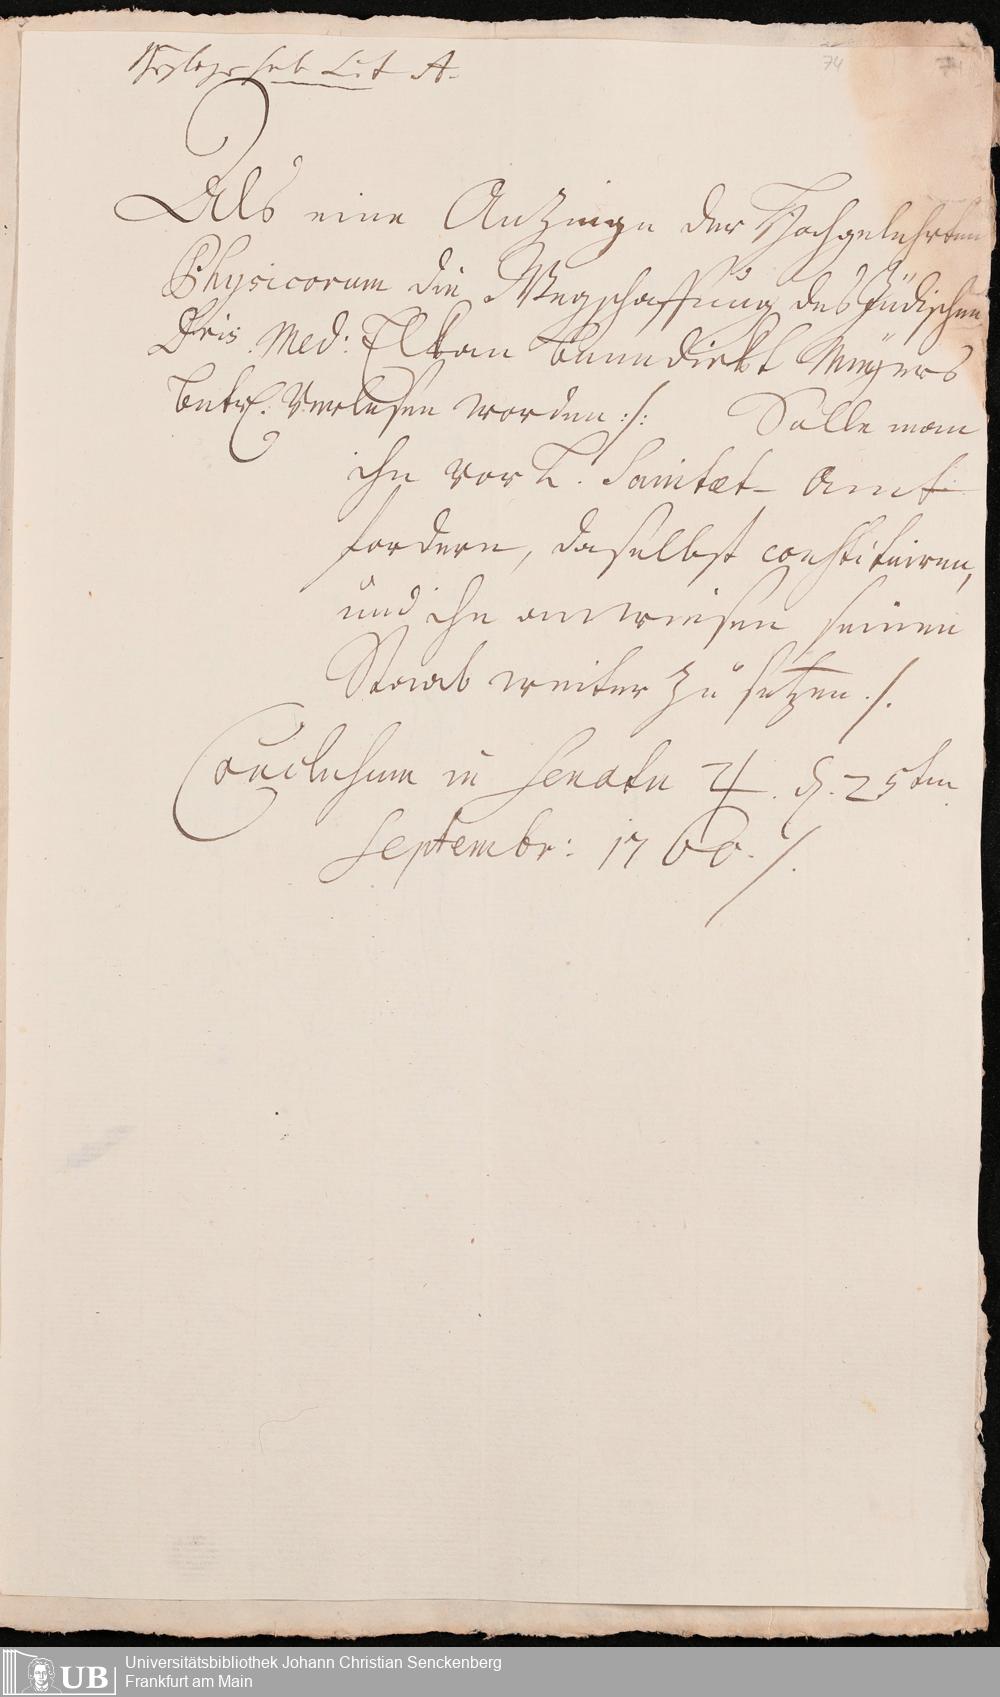 Beylage sub Lit A.
74
Als eine Anzeige der Hochgelehrten
Physicorum die Wegschaffung des Jüdischen
Dris. Med: Elkan Benedickt Meyers
betr. verlesen worden :/: Solle man
ihn vor L. Sanitæt-Amt
fordern, daselbst constituiren,
und ihn anweisen seinen
Staab weiter zu setzen ./.
Conclusum in Senatu ♃. d. 25ten
Septembr: 1760. /.
UB
Universitätsbibliothek Johann Christian Senckenberg
Frankfurt am Main